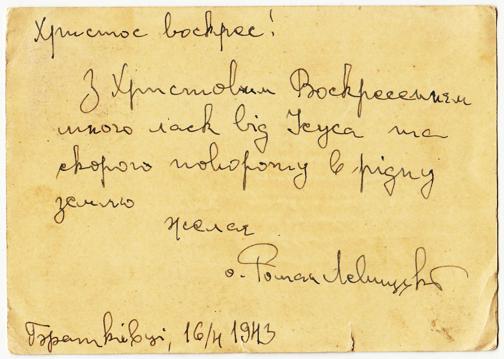 Христос воскрес!
З Христовим Воскресеннєм
много ласк від Ісуса та
скорого повороту в рідну
землю
желає
о. Роман Левицкий
16/4 1943